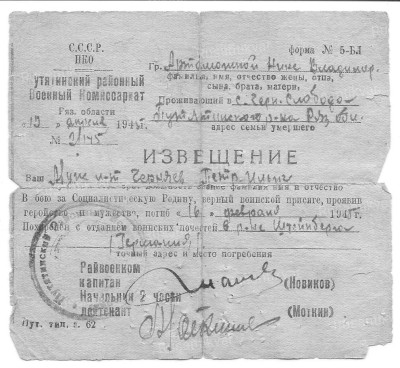 С.С.С.Р.
НКО
Путятинский районный
Военный Комиссариат
Ряз. области
апреля 1945г.
№ 2/145
форма № 5-БЛ
Гр. Артамоновой Нине Владимир.
фамилия, имя, отчество жены, отца,
сына, брата, матери,
Проживающий в с. Черн. Слобода
Путятинского р-на Ряз. обл.
адрес семьи умершего
ИЗВЕЩЕНИЕ
Ваш Муж л-т Черняев Петр
фамилия имя и отчество
В бою за Социалистическую Родину, верный воинской присяге, проявив
геройство и мужество, погиб "16" февраля 1945г
Похоронен с отданием воинских почестей В р-не
(Германия)
точный адрес и место погребения
Райвоенком
капитан
(Новиков)
Начальник 2 части
лейтенант
(Моткин)
Пут. тип. з. 62
Путятинский